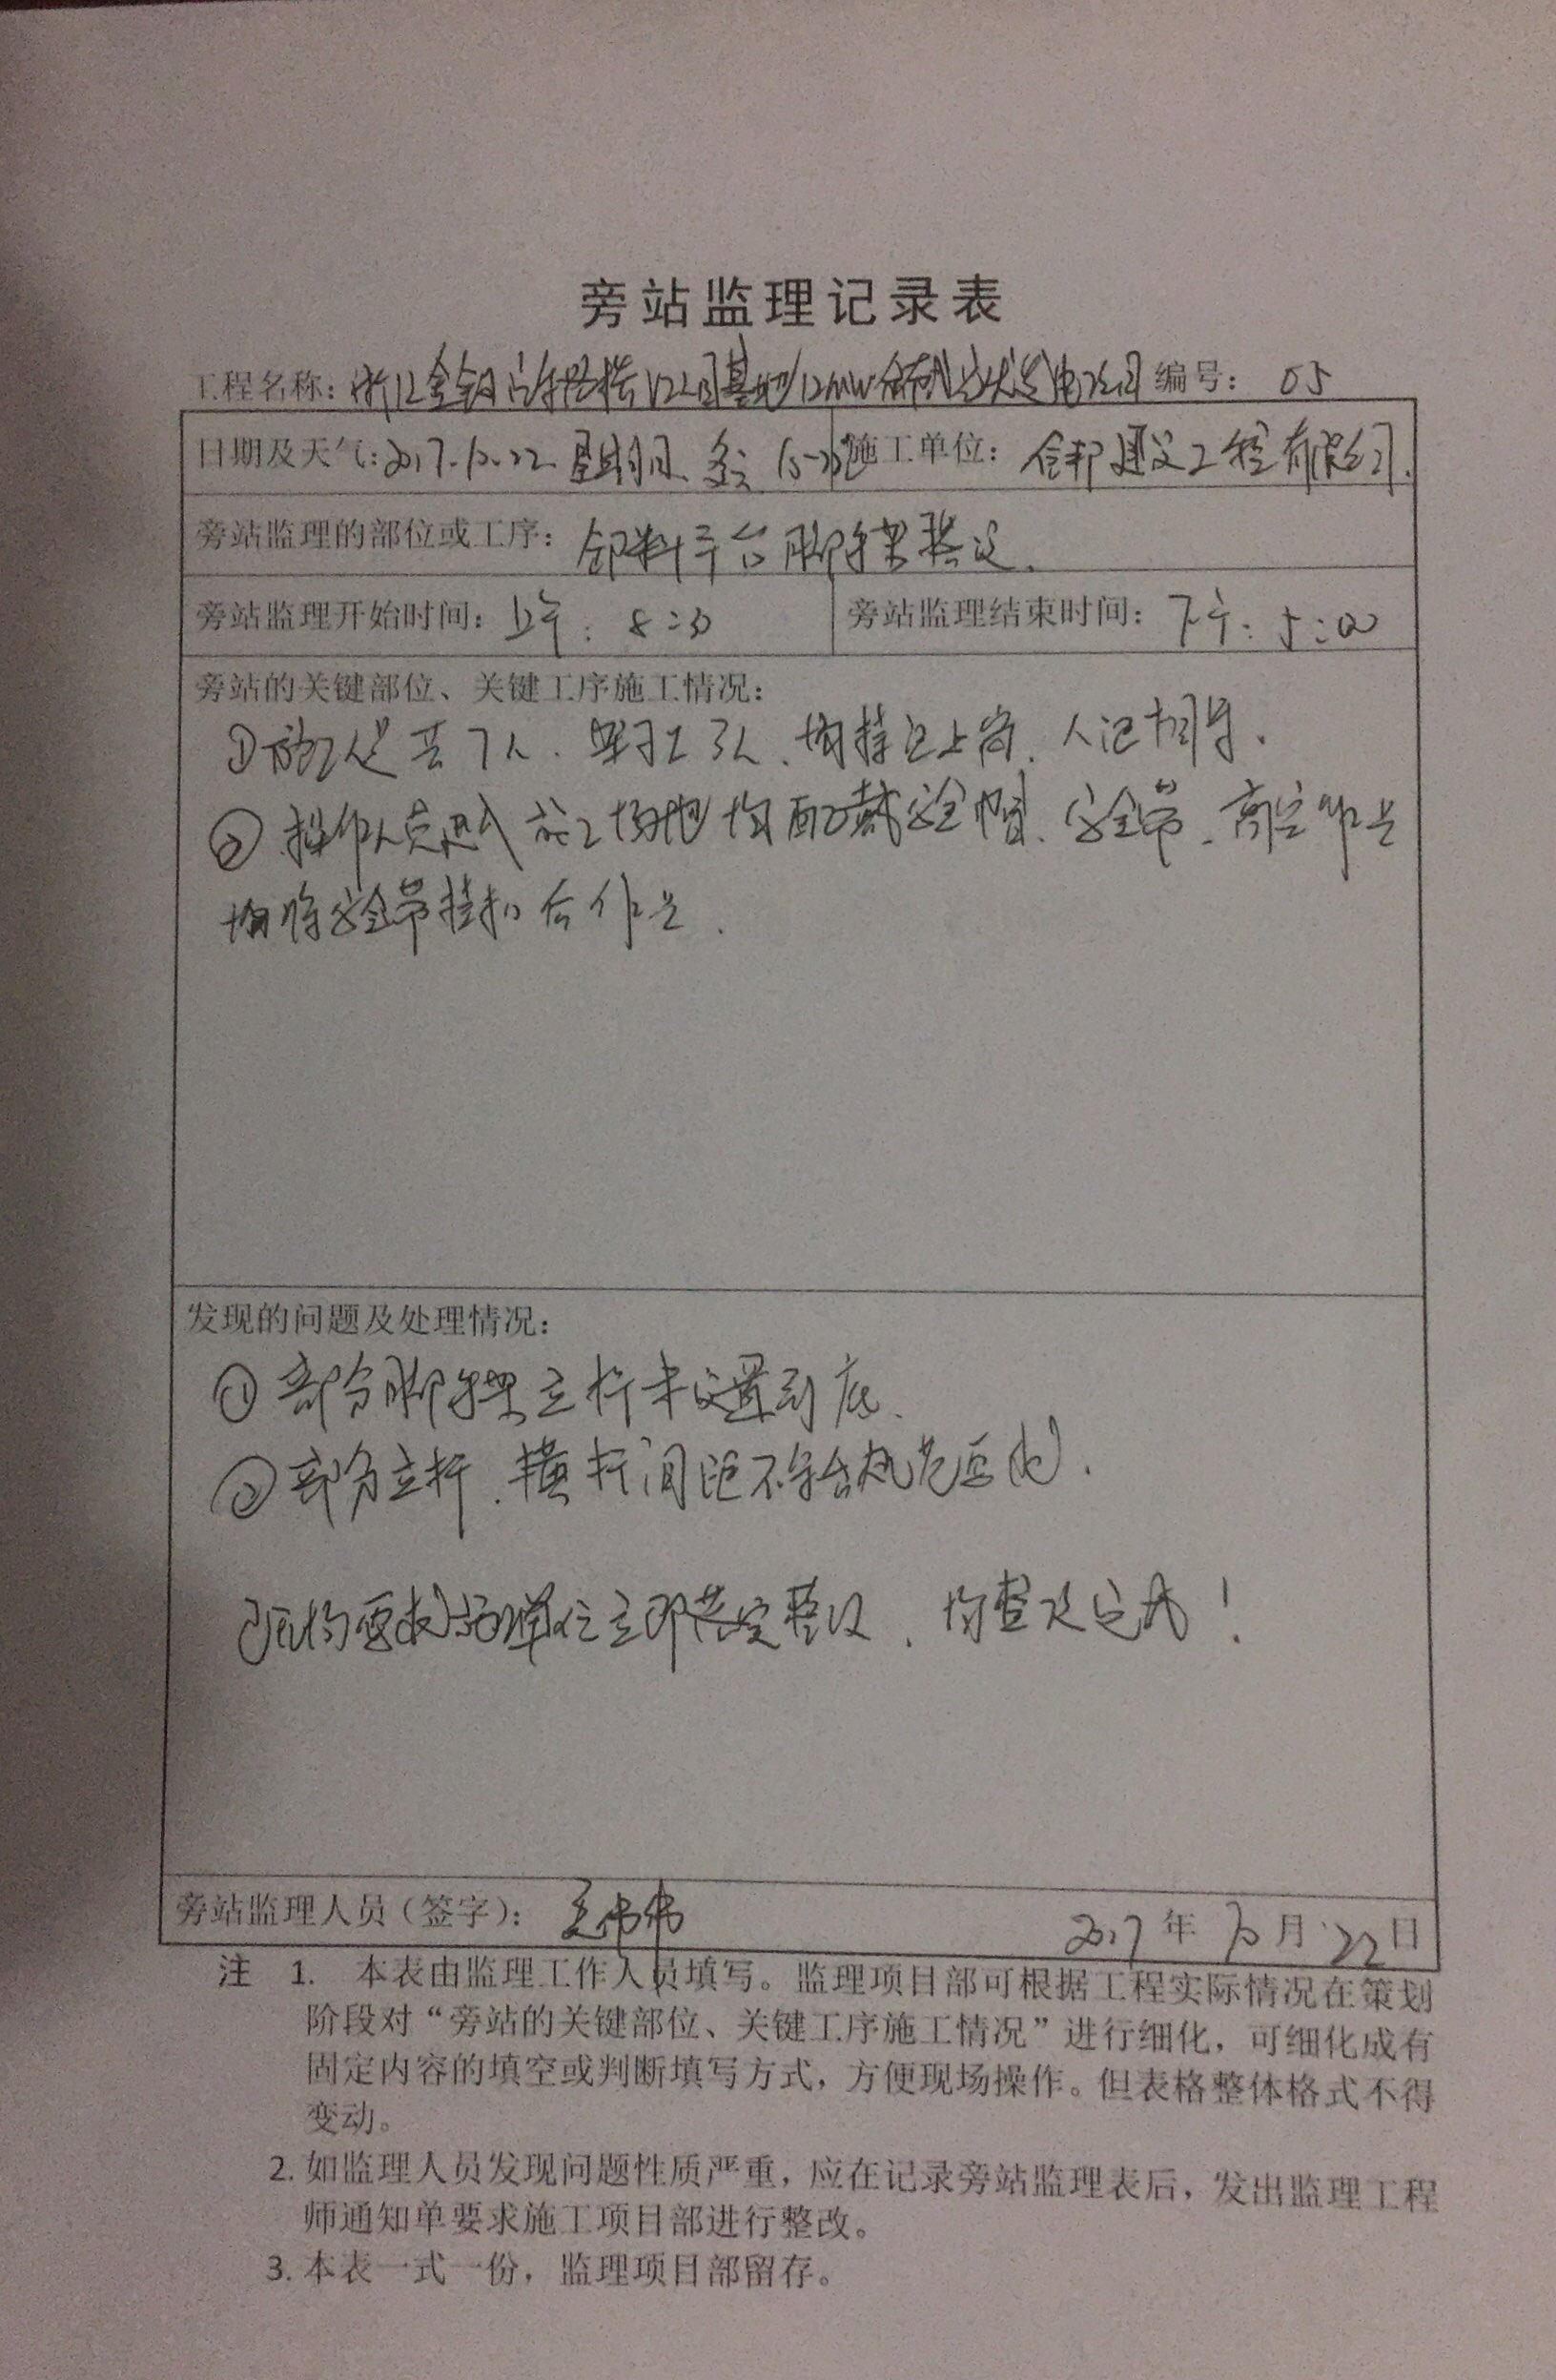 旁站监理记录表
工程名称：浙江金 基地12MW 发电项目 编号：05
日期及天气：2017.10.22 星期日 多云 15-23℃ 施工单位：合邦建设工程有限公司.
旁站监理的部位或工序：卸料平台脚手架搭设.
旁站监理开始时间：上午：8:30 旁站监理结束时间：下午：5:00
旁站的关键部位、关键工序施工情况：
①施工人员共7人、架子工3人、均持证上岗、人证相符.
②操作人员进入施工场地均配戴安全帽、安全带、高空作业
均将安全带挂扣后作业.
发现的问题及处理情况：
①部分脚手架立杆未设置到底、
②部分立杆、横杆间距不符合规范要求.
均要求施工单位立即落实整改、均整改完成！
旁站监理人员（签字）： 伟伟
2017年10月22日
注 1. 本表由监理工作人员填写。监理项目部可根据工程实际情况在策划
阶段对“旁站的关键部位、关键工序施工情况”进行细化，可细化成有
固定内容的填空或判断填写方式，方便现场操作。但表格整体格式不得
变动。
2. 如监理人员发现问题性质严重，应在记录旁站监理表后，发出监理工程
师通知单要求施工项目部进行整改。
3. 本表一式一份，监理项目部留存。